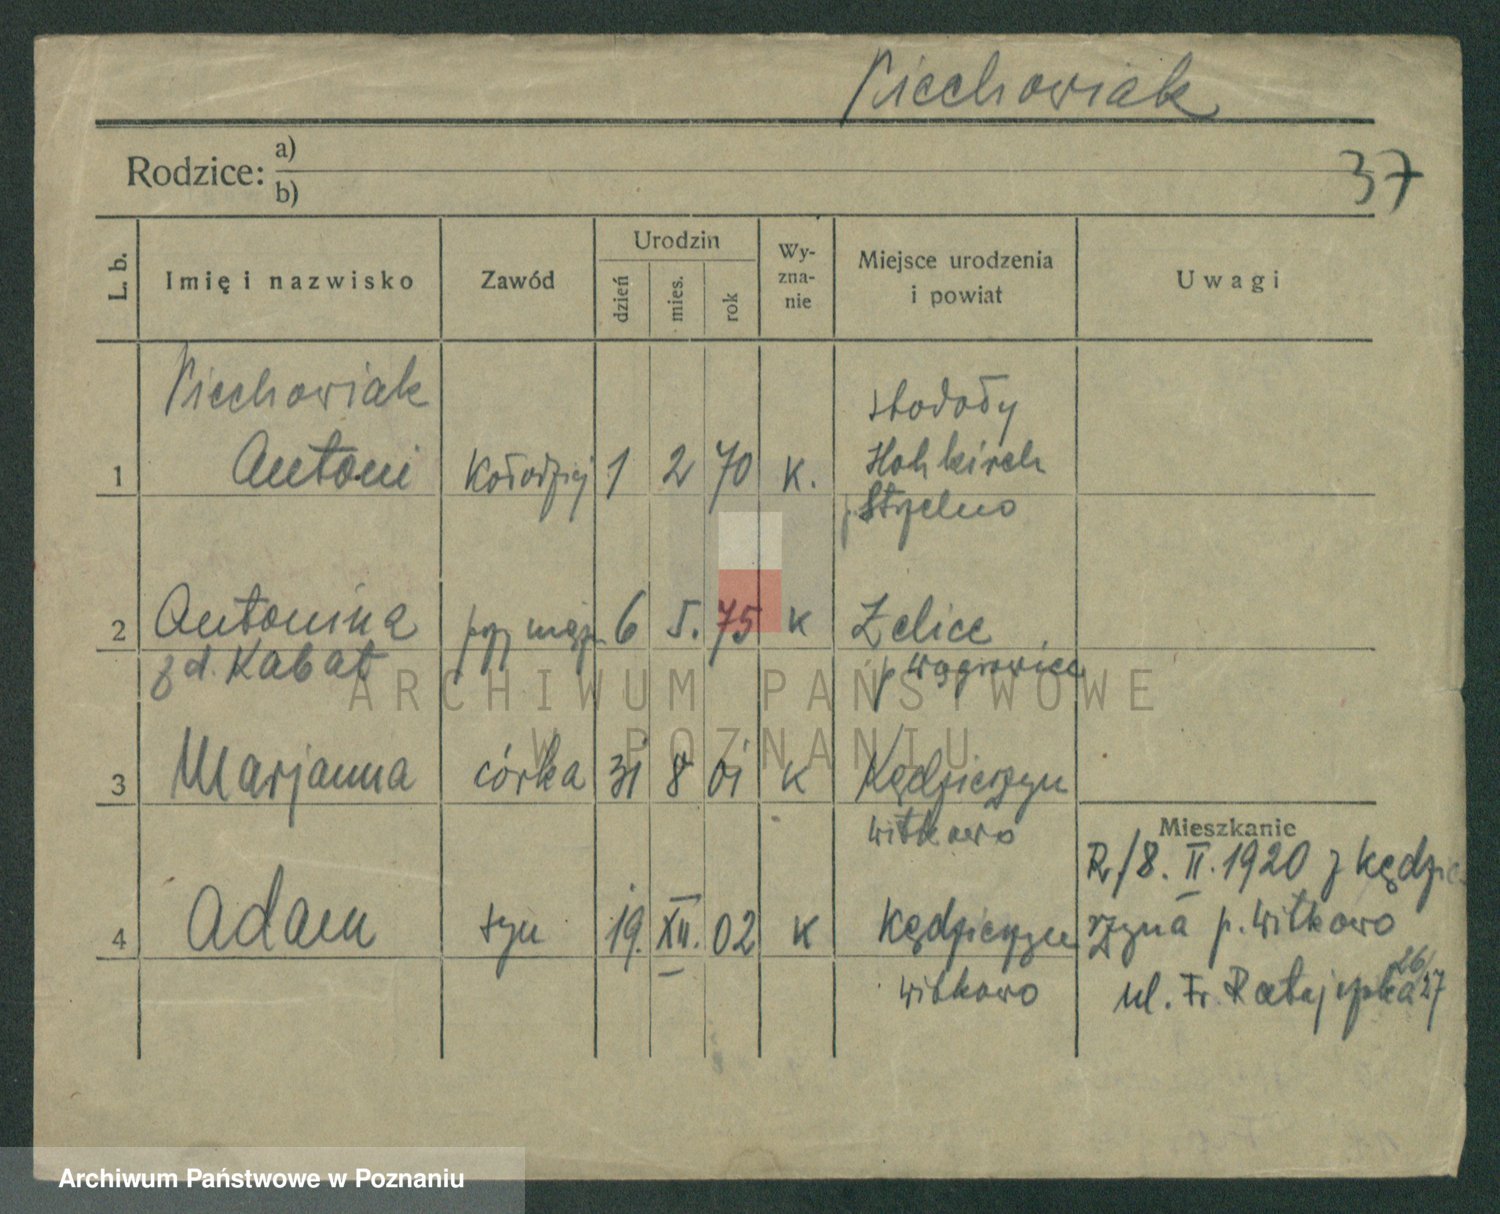 Piechowiak
37
Rodzice: a)
b)
L. b.
Imię i nazwisko
Zawód
Urodzin
dzień
mies.
rok
Wy-
zna-
nie
Miejsce urodzenia
i powiat
Uwagi
Piechowiak
1 Antoni Kołodziej 1 2 70 K.
Stodoły
Hohkirch
p. Strzelno
2 Antonina przy mężu 6 5. 75 K Zelice
z d. Kabat p Wągrowiec
3 Marjanna córka 31 8 01 K Kędzierzyn
Witkowo
4 Adam syn 19. XII. 02 K Kędzierzyn
Witkowo
Mieszkanie
R/8. II. 1920 z Kędzie
rzyna p. Witkowo
ul. Fr. Ratajczaka 26/27
ARCHIWUM PAŃSTWOWE
W POZNANIU
Archiwum Państwowe w Poznaniu